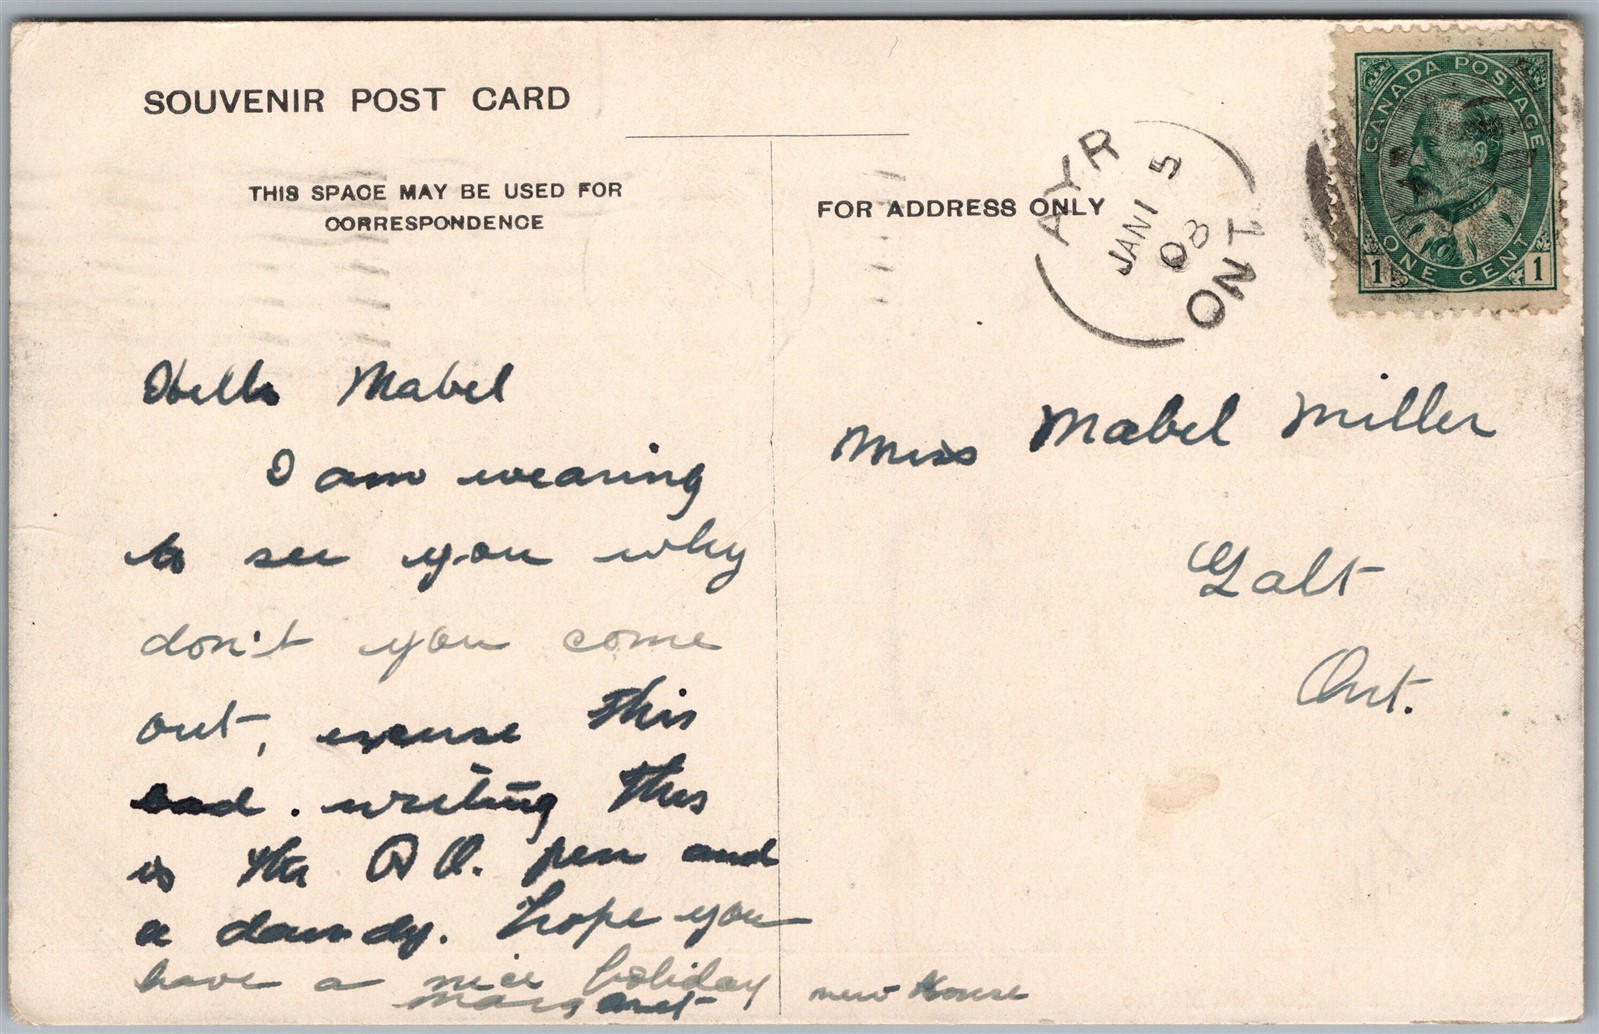 SOUVENIR POST CARD
THIS SPACE MAY BE USED FOR
CORRESPONDENCE
FOR ADDRESS ONLY
AYR
JAN 15
08
ONT
CANADA POSTAGE
1 ONE CENT 1
Hello Mabel
I am wearing
to see you why
don't you come
out, excuse this
bad. writing this
is the P.O. pen and
a dandy. hope you
have a nice holiday
Margaret
new House
Miss Mabel Miller
Galt
Ont.